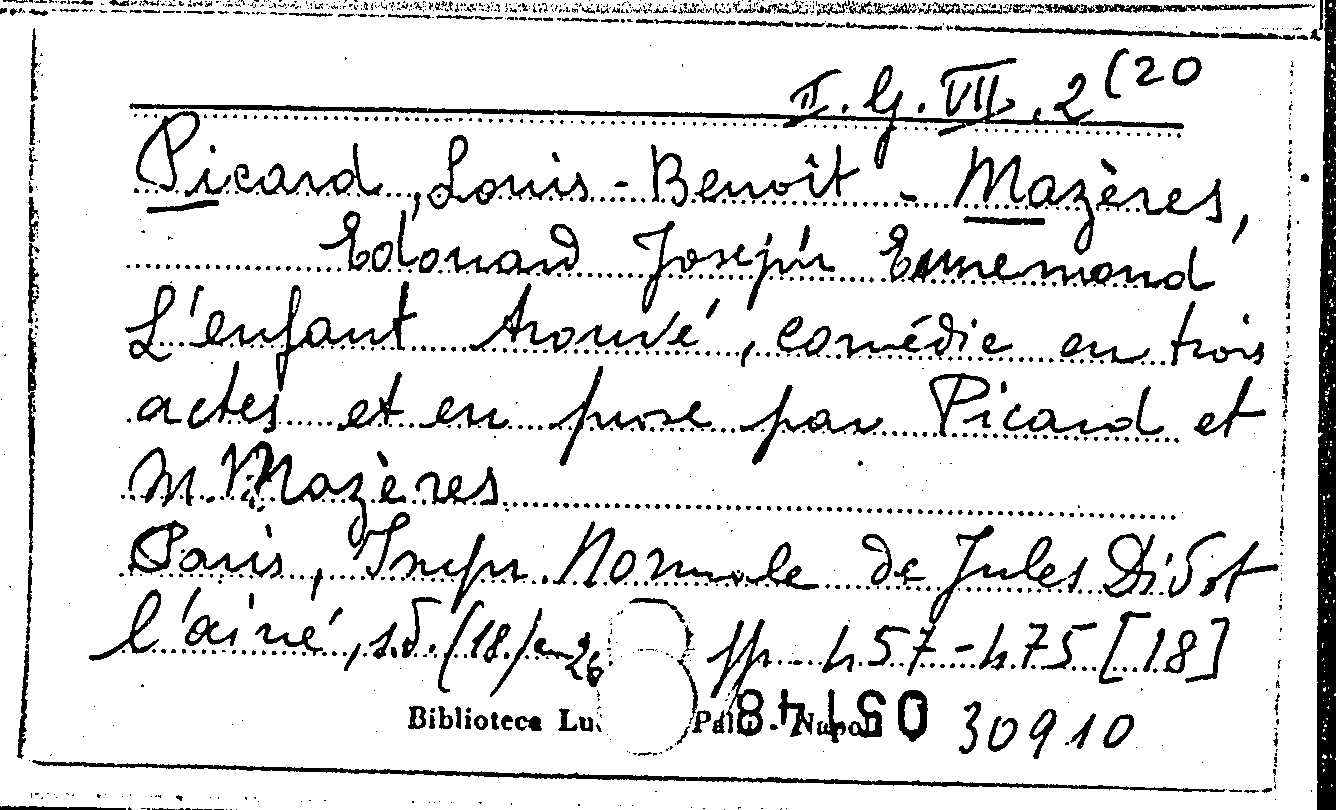 II. G. VII. 2 (20
Picard, Louis-Benoît - Mazères,
Edouard Joseph Ennemond
L'enfant trouvé, comédie en trois
actes et en prose par Picard et
M. Mazères
Paris, Impr. Normale de Jules Didot
l'ainé, s.d. (18.) cm 26 pp. 457-475 [18]
Biblioteca Lu Pal - Napoli
30910